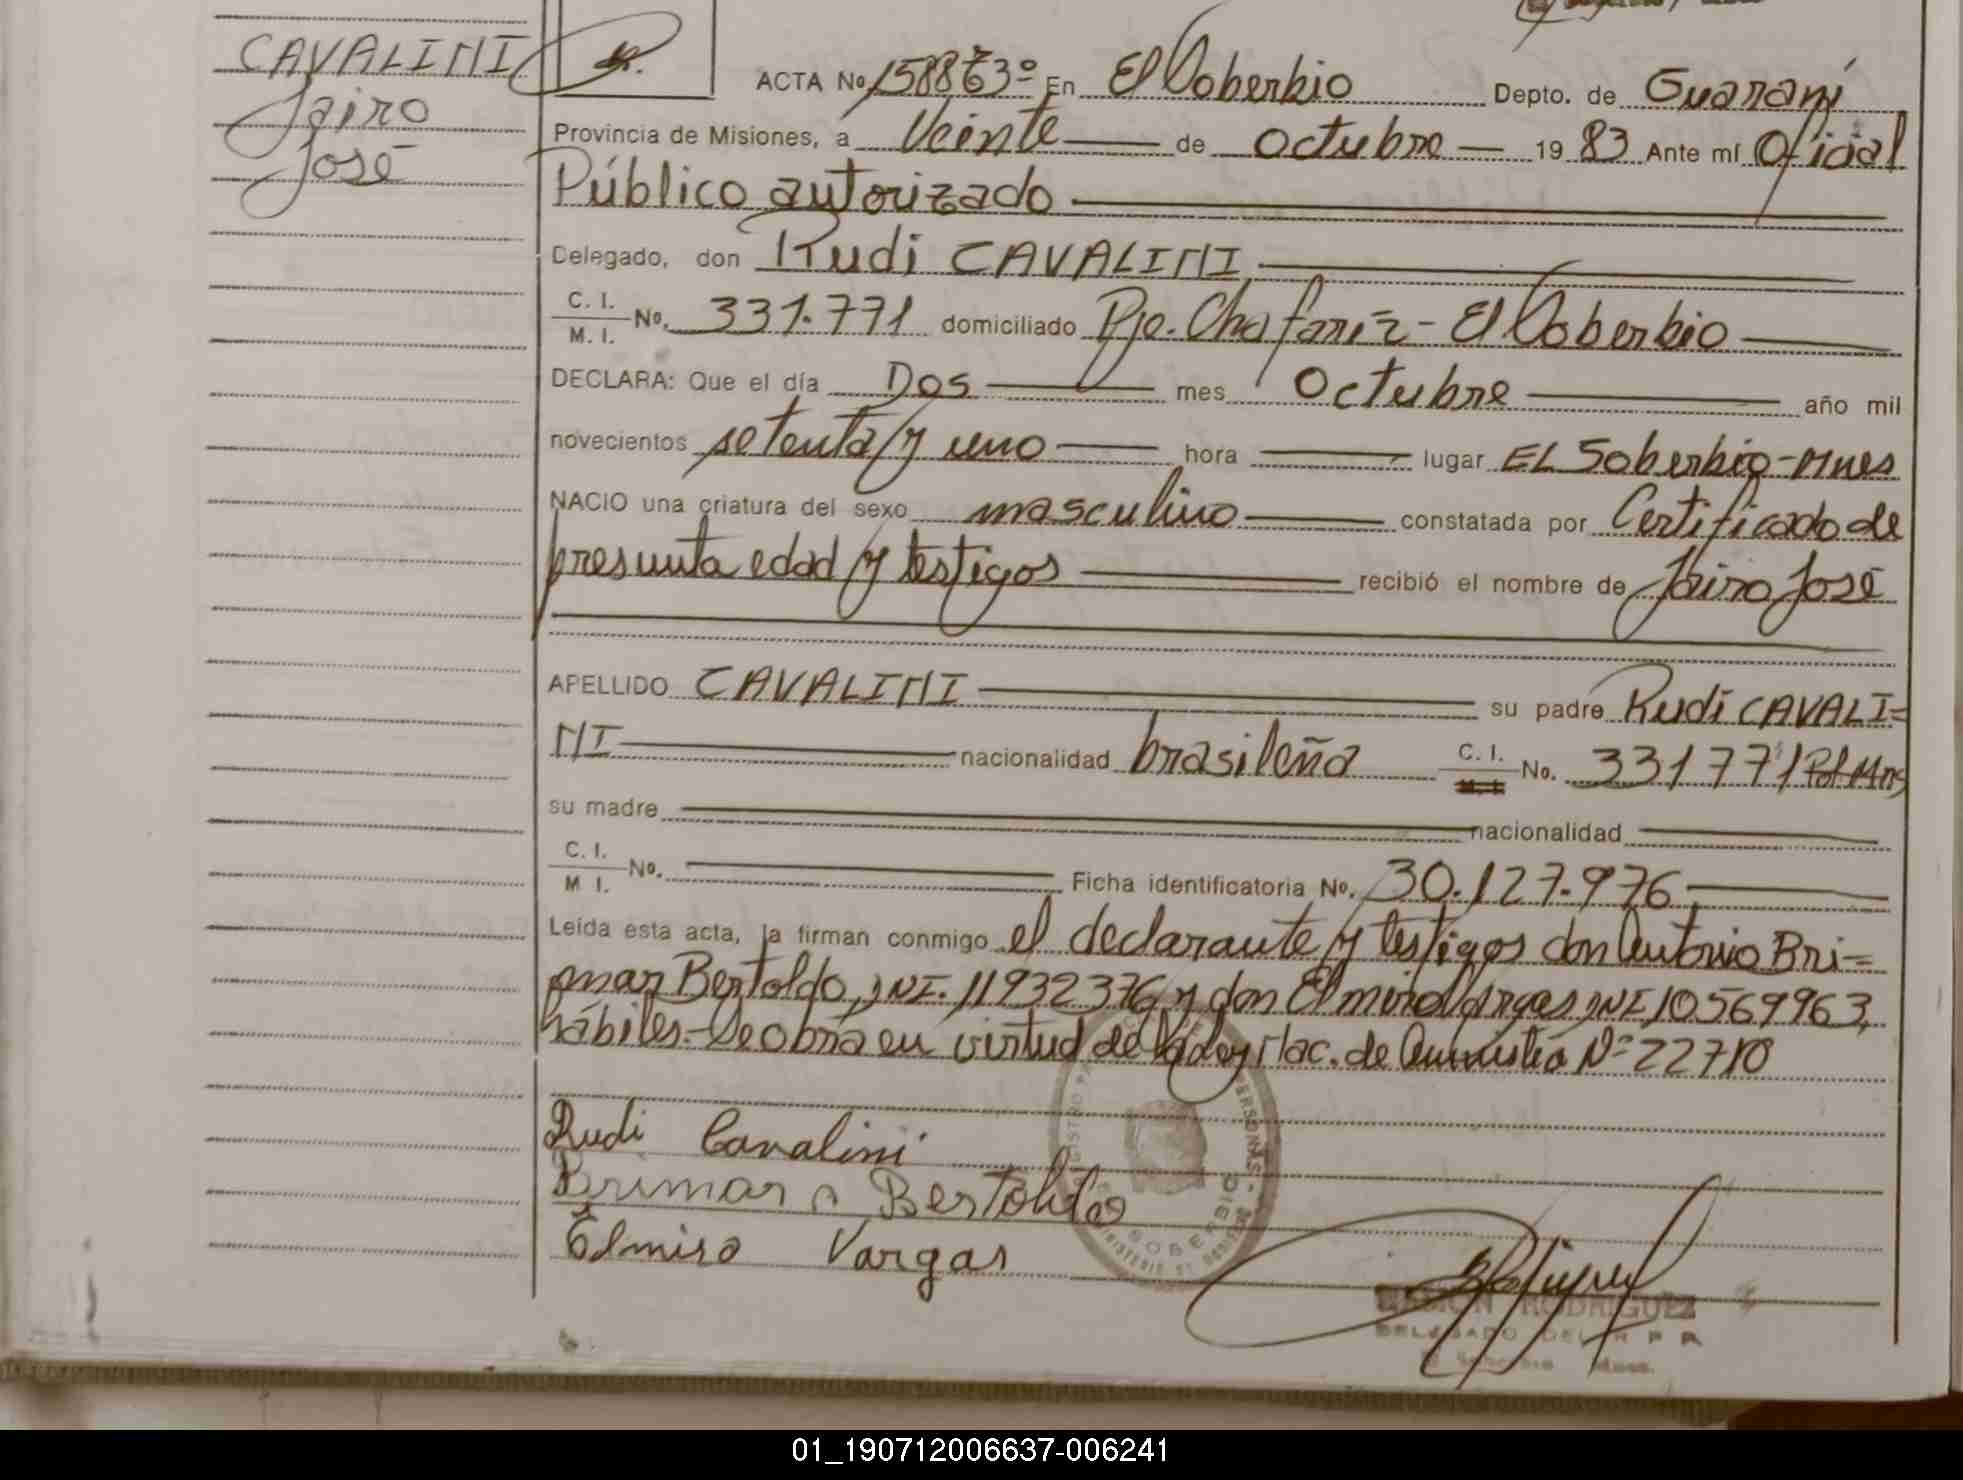 CAVALINI
Jairo
José
ACTA No 158863º En El Soberbio Depto. de Guaraní
Provincia de Misiones, a Veinte de Octubre 19 83 Ante mí Oficial
Público autorizado
Delegado, don Rudi CAVALINI
C. I.
M. I. No. 331.771 domiciliado Pje. Chafariz - El Soberbio
DECLARA: Que el día Dos mes Octubre año mil
novecientos setenta y uno hora lugar EL Soberbio-Mnes
NACIO una criatura del sexo masculino constatada por Certificado de
presunta edad y testigos recibió el nombre de Jairo José
APELLIDO CAVALINI su padre Rudi CAVALI=
NI nacionalidad brasileña C. I. No. 331771 Pol Mns
su madre nacionalidad
C. I.
M I. No. Ficha identificatoria No. 30.127.976
Leida esta acta, la firman conmigo el declarante y testigos don Antonio Bri=
mar Bertoldo, DNI. 11932376 y don Elmiro Vargas DNI 10569963,
hábiles.- Se obra en virtud de Ley Nac. de Amnistía Nº 22710
Rudi Cavalini
Brimar A Bertoldo
Elmiro Vargas
SOBERBIO
RODRIGUEZ
DELEGADO DEL R P P
01_190712006637-006241